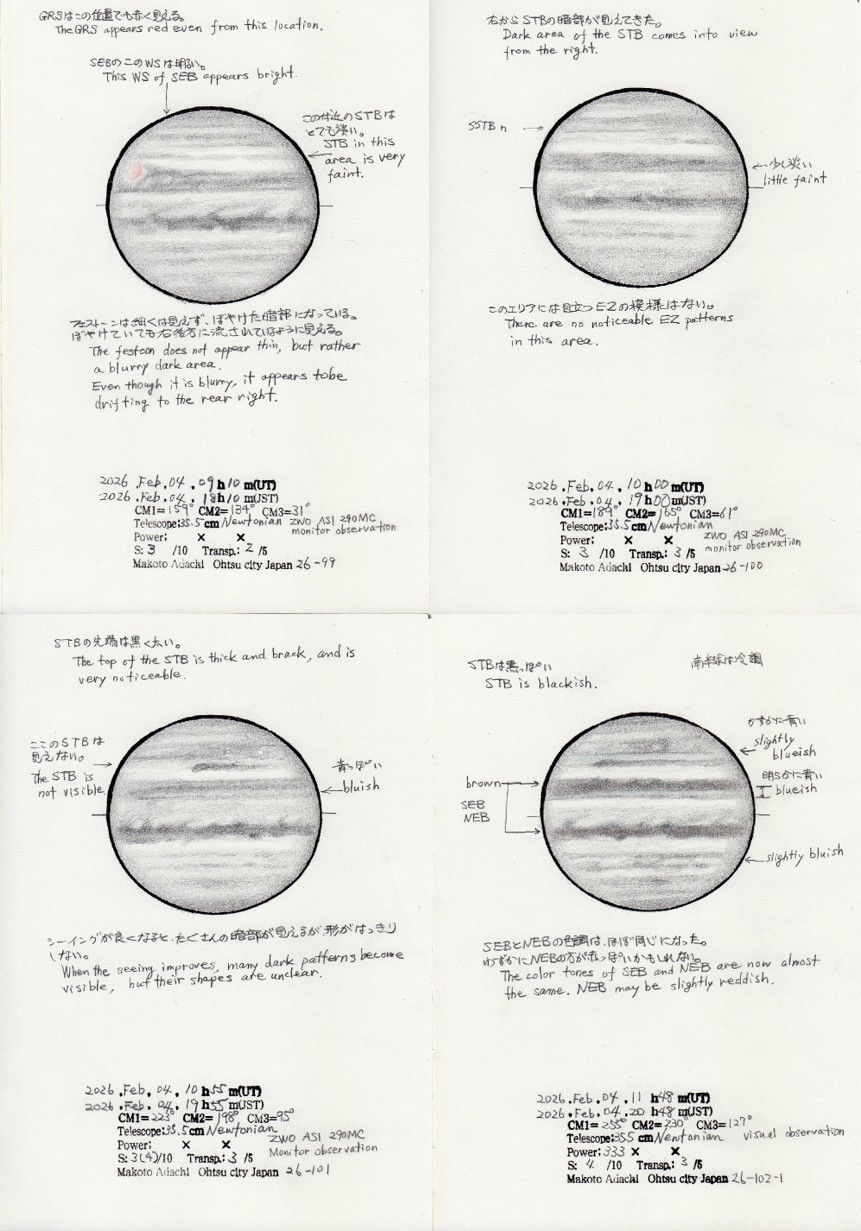 GRSはこの位置でも赤く見える。
The GRS appears red even from this location.
SEBのこのWSは明るい。
This WS of SEB appears bright.
この付近のSTBは
とても淡い。
STB in this
area is very
faint.
フェストーンは細くは見えず、ぼやけた暗部になっている。
ぼやけていても右後方に流されているように見える。
The festoon does not appear thin, but rather
a blurry dark area.
Even though it is blurry, it appears tobe
drifting to the rear right.
2026 .Feb.04 .09h10 m(UT)
2026 .Feb.04 .18h10 m(JST)
CM1=159° CM2=134° CM3=31°
Telescope:35.5cm Newtonian ZWO ASI 290MC
monitor observation
Power: × ×
S: 3 /10 Transp.: 2 /5
Makoto Adachi Ohtsu city Japan 26-99
右からSTBの暗部が見えてきた。
Dark area of the STB comes into view
from the right.
SSTB n
少し淡い
little faint
このエリアには目立つEZの模様はない。
There are no noticeable EZ patterns
in this area.
2026 .Feb.04 .10h00 m(UT)
2026 .Feb.04 .19h00 m(JST)
CM1=189° CM2=165° CM3=61°
Telescope:35.5cm Newtonian
ZWO ASI 290MC
monitor observation
Power: × ×
S: 3 /10 Transp.: 3 /5
Makoto Adachi Ohtsu city Japan 26-100
STBの先端は黒く太い。
The top of the STB is thick and brack, and is
very noticeable.
ここのSTBは
見えない。
The STB is
not visible.
青っぽい
bluish
シーイングが良くなると、たくさんの暗部が見えるが、形がはっきり
しない。
When the seeing improves, many dark patterns become
visible, but their shapes are unclear.
2026 .Feb.04 .10h55 m(UT)
2026 .Feb.04 .19h55 m(JST)
CM1=223° CM2=198° CM3=95°
Telescope:35.5cm Newtonian
ZWO ASI 290MC
Monitor observation
Power: × ×
S: 3(4)/10 Transp.: 3 /5
Makoto Adachi Ohtsu city Japan 26-101
STBは黒っぽい
STB is blackish.
南半球は冷調
かすかに青い
slightly
blueish
brown
SEB
NEB
明らかに青い
blueish
slightly bluish
SEBとNEBの色調は、ほぼ同じになった。
わずかにNEBの方が赤っぽいかもしれない。
The color tones of SEB and NEB are now almost
the same. NEB may be slightly reddish.
2026 .Feb.04 .11 h48 m(UT)
2026 .Feb.04 .20 h48 m(JST)
CM1=255° CM2=230° CM3=127°
Telescope:35.5cm Newtonian visual observation
Power:333 × ×
S: 4 /10 Transp.: 3 /5
Makoto Adachi Ohtsu city Japan 26-102-1